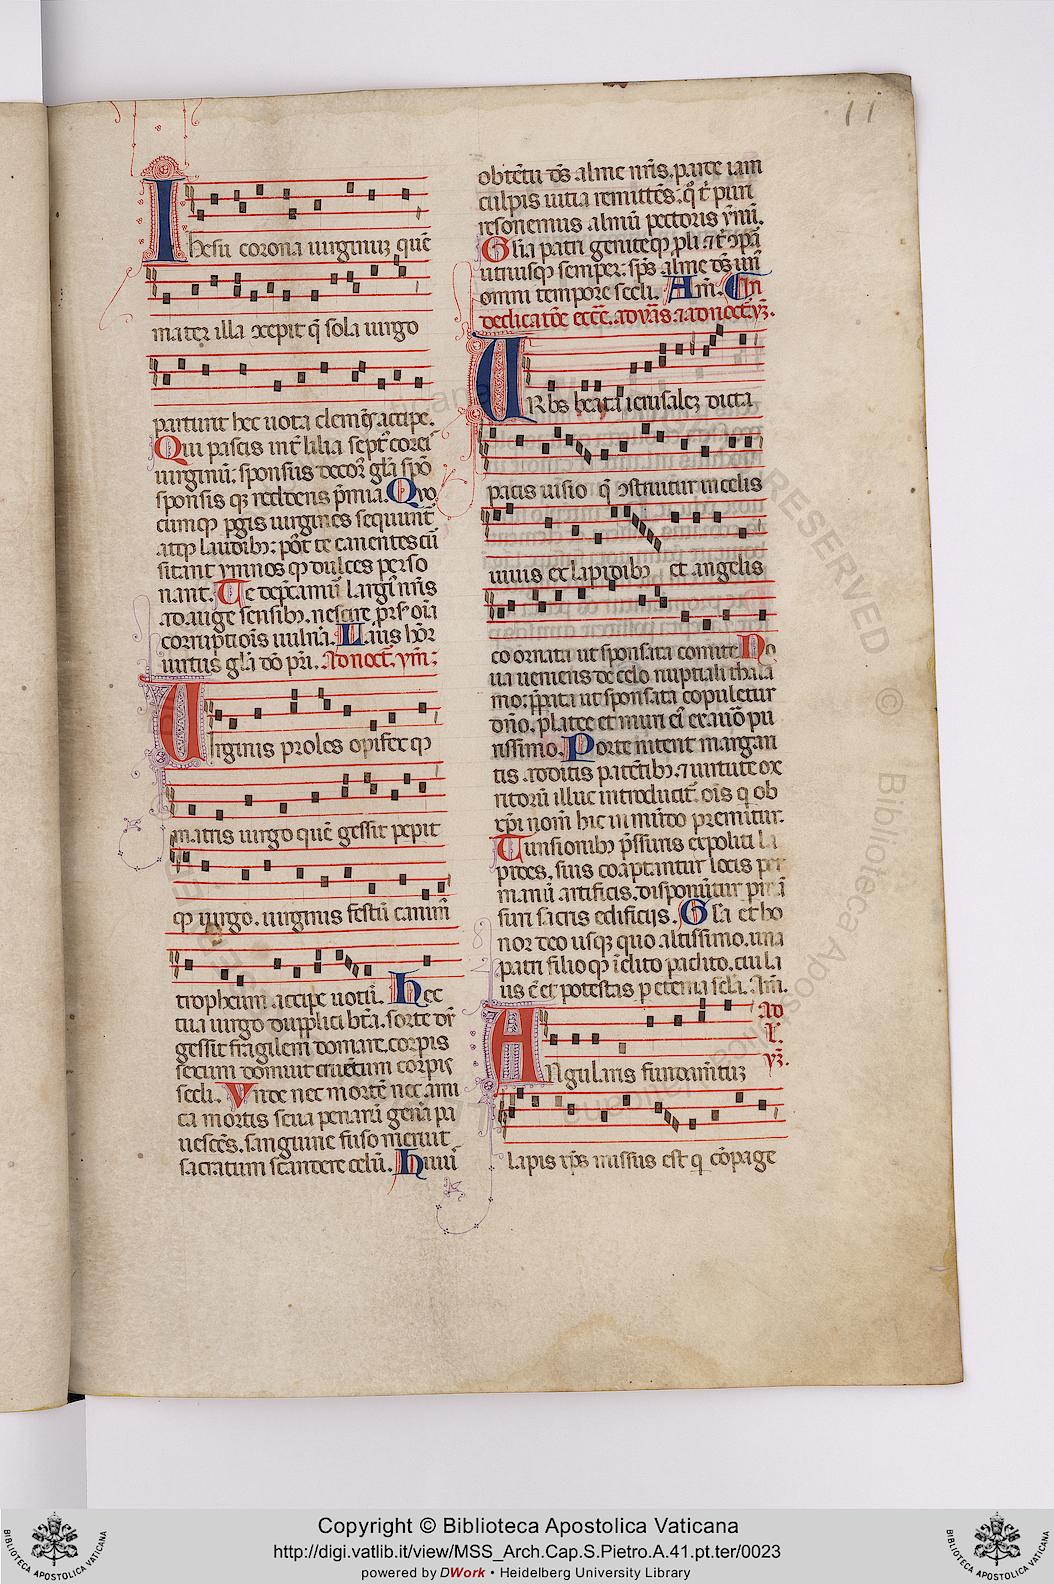 11
Ihesu corona uirginuȝ quē
mater illa ↄcepit q̄ sola uirgo
parturit hec uota clemēs accipe.
Qui pascis int̄ lilia sept᷒ coreis
uirginū. sponsus decor᷒ gl̄a spō
sponsis qȝ reddens p̄mia. Quo
cumqꝫ pgis uirgines sequunt᷒
atqꝫ laudibꝫ: pōt te canentes cū
sitant ymnos qꝫ dulces perso
nant. Te dep̄camū largi᷒ nr̄is
adauge sensibꝫ. nescire prs᷒ oīa
corruptiōis uulna᷒. Laus hor
uirtus gl̄a dō pr̄i. Ad noct᷒. ym̄.
Uirginis proles opifex qꝫ
matris uirgo quē gessit pepit
qꝫ uirgo. uirginis festū canimꝰ
tropheum accipe uotū. Hec
tua uirgo duplici bt̄a. sorte dr̄
gessit fragilem domare. corpis
sexum domuit cruētum corpis
secli. Unde nec mortē nec ami
ca mortis seua penarū gen̄a pa
uescēs. sanguine fuso meruit
sacratum scandere celū. Huius
obtētu dꝰs alme nr̄is. parce iam
culpis uitia remittēs. q̊ t᷒ puri
resonemus almū pectoris ymnū.
Gl̄ia patri geniteqꝫ ꝓli ⁊ t᷒ ↄpar᷒
utriusqꝫ semper. sp̄s alme dꝰs unꝰ
omni tempore secli. Am̄. In
dedicatōe ecc̄e. ad uās. ⁊ ad noct᷒. yȝ.
URbs beata ierusaleȝ dicta
pacis uisio q̄ ↄstruitur in celis
uiuis ex lapidibꝫ et angelis
co ornata ut sponsata comite No
ua ueniens de celo nuptiali thala
mo: p̄parata ut sponsata copuletur
dño. platee et muri eiꝰ ex auro pu
rissimo. Porte nitent margari
tis. additis patētibꝫ. ⁊ uirtute
ritorū illuc introducit᷒. oīs q ob
xp̄i nom̄ hic in mūdo premitur.
Tunsionibꝫ p̄ssuris expoliti la
pides. suis coaptantur locis per
manū artificis. disponūtur
suri sacris edificijs. Gl̄a et ho
nor deo usqꝫ quo altissimo. una
patri filio qꝫ īclito paclito. cui la
us ē et potestas p eterna sclā. Am̄.
Ad
yȝ.
ANgularis fundam̄tuȝ
lapis xp̄s missus est q cōpage
RESERVED © Biblioteca Apostolica Vaticana
BIBLIOTECA APOSTOLICA VATICANA
Copyright © Biblioteca Apostolica Vaticana
http://digi.vatlib.it/view/MSS_Arch.Cap.S.Pietro.A.41.pt.ter/0023
powered by DWork • Heidelberg University Library
BIBLIOTECA APOSTOLICA VATICANA